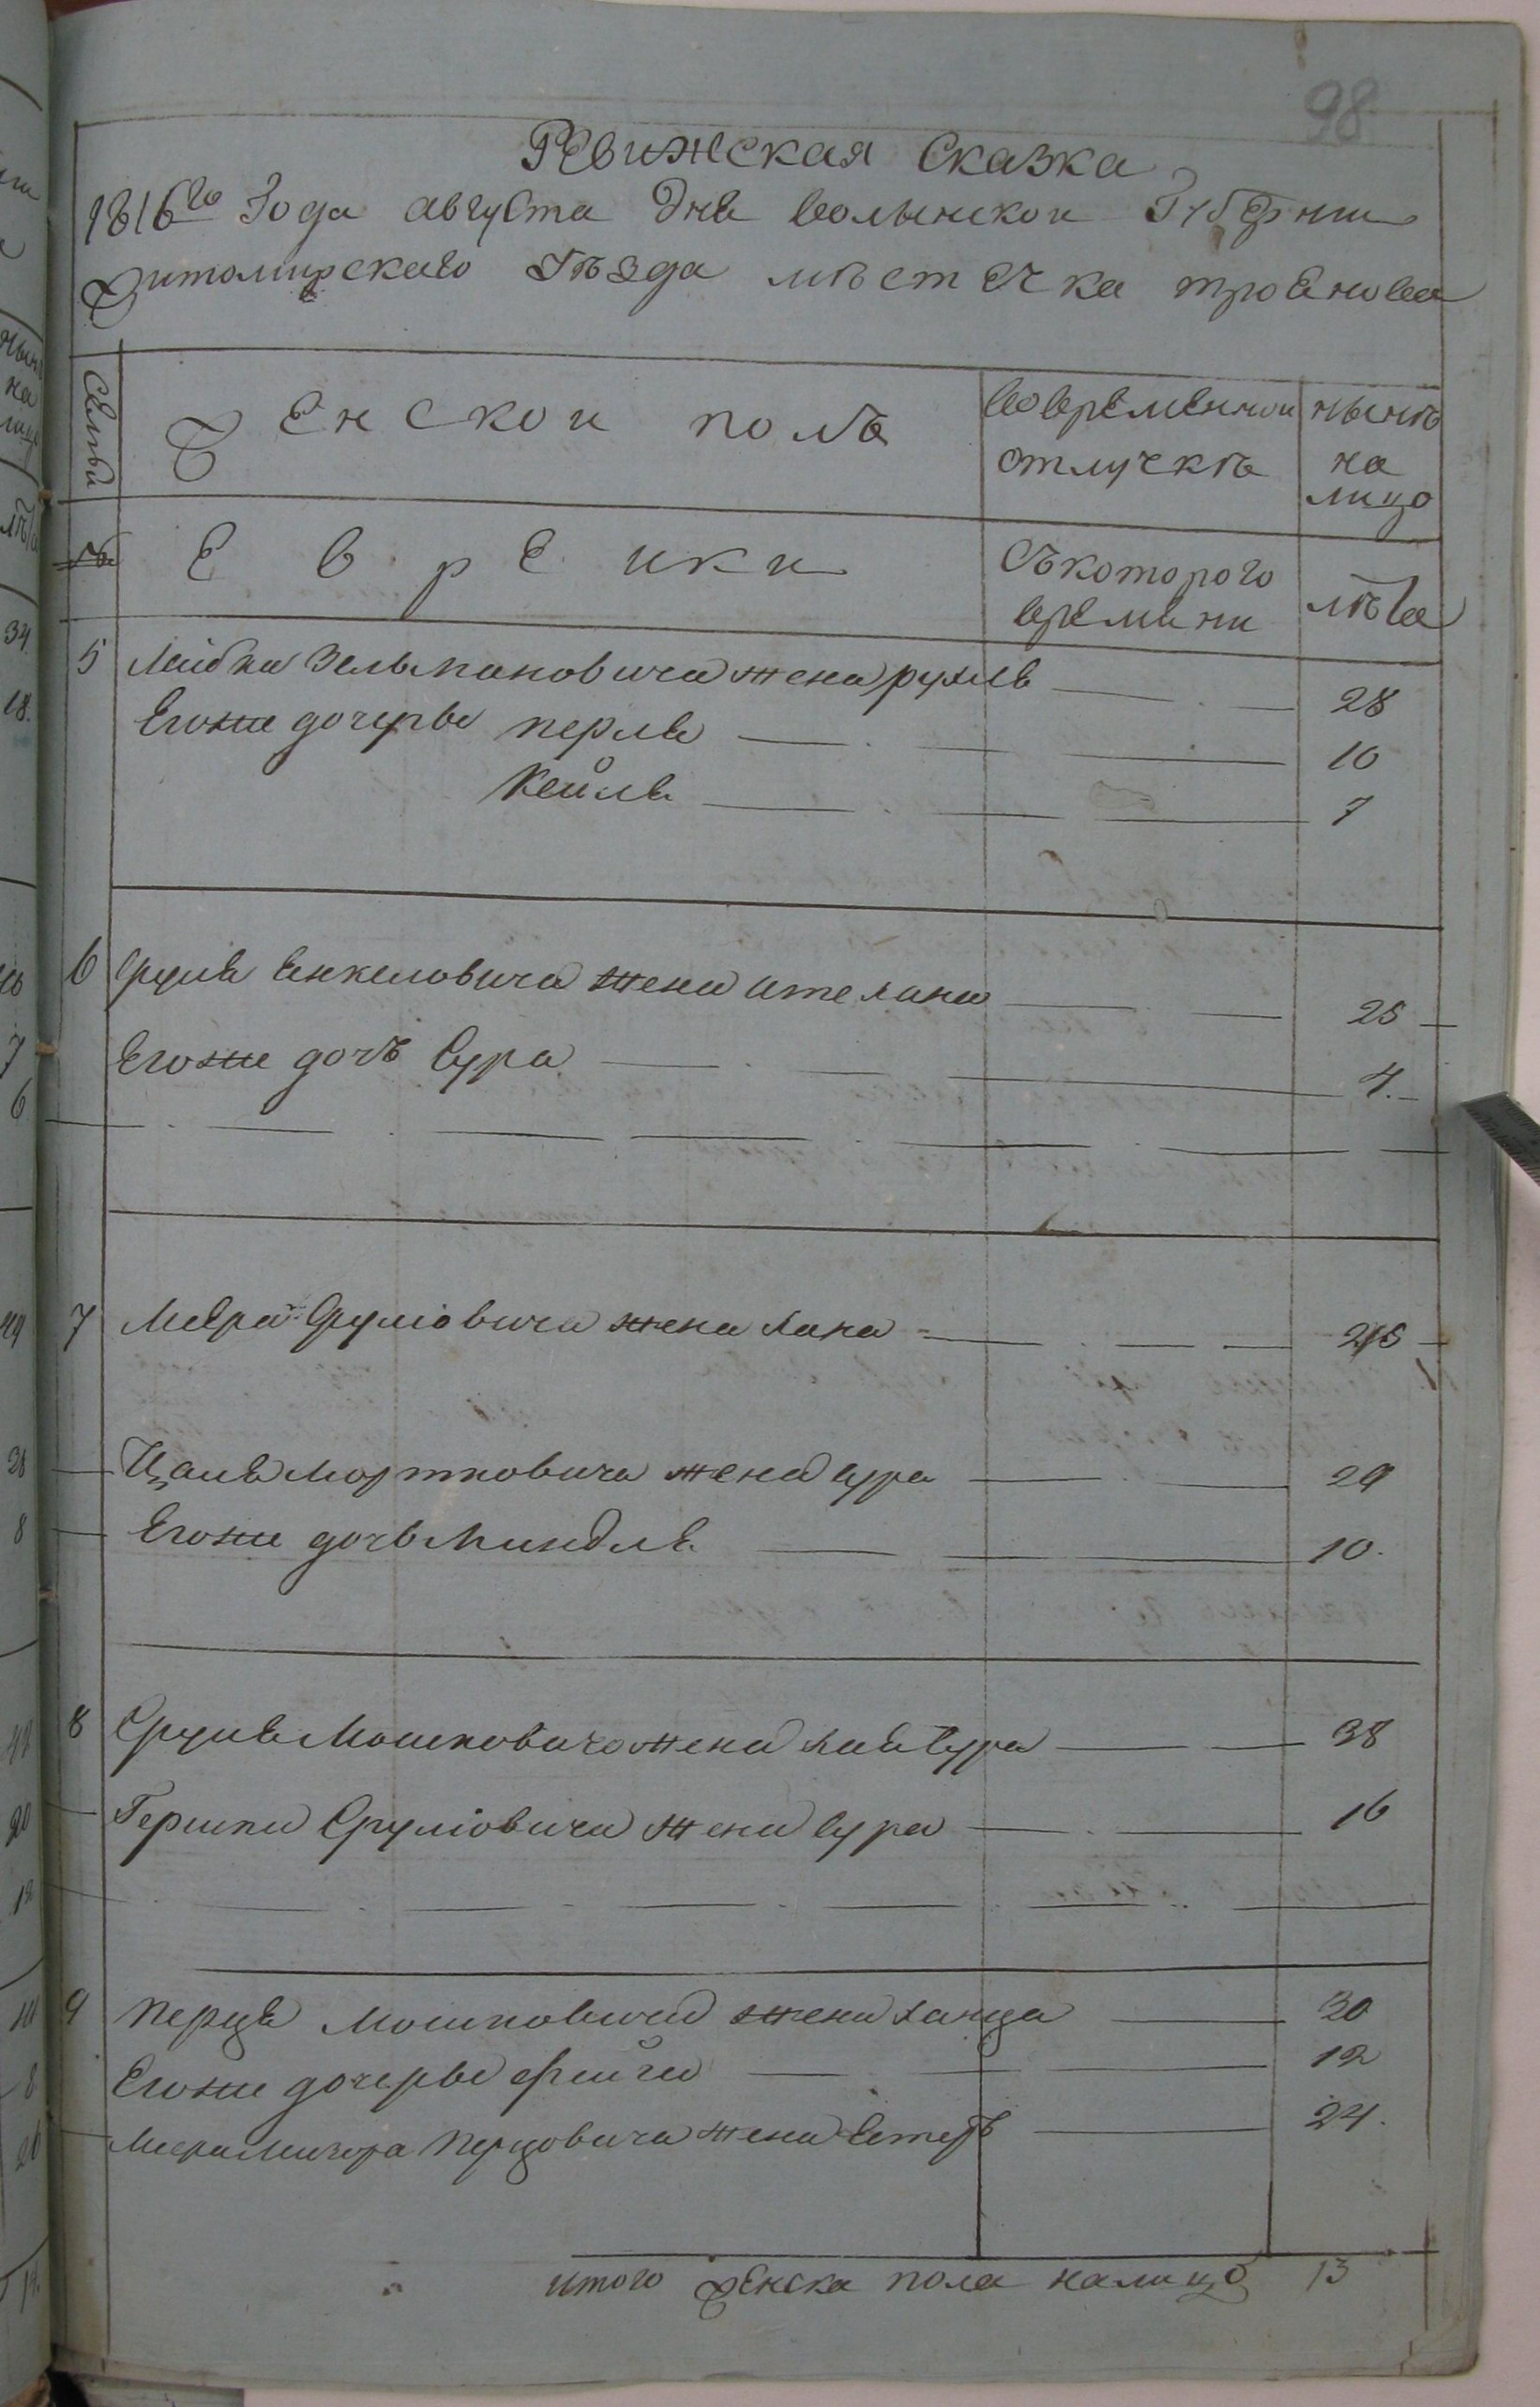 98
Ревижская Сказка
1816го Года августа дня волынской Губернии
Житомирского Уѣзда мѣстечка троянова
Семьи
Женской полъ
вовременной отлучкѣ
нынѣ на лицо
№
Еврейки
Съкоторого времени
лѣта
5 Лейбка Зельмановича жена рухля 28
Егоже дочерье перля 10
Кейля 7
6 Сруля Енкеловича жена ите хана 25
Егоже дочъ Сура 4.
7 Меера Срулiовича жена хана 25
Цаля Мортковича жена сура 29
Егоже дочь Миндля 10.
8 Сруля Мошковича жена хая Сура 38
Гершка Срулiовича жена Сура 16
9 перца мошковича жена ханца 30
Егоже дочерье фейга 12
Перцовича жена Естеръ 24.
итого женска пола налицо 13
34
18.
7
6
44
8
20
12
8